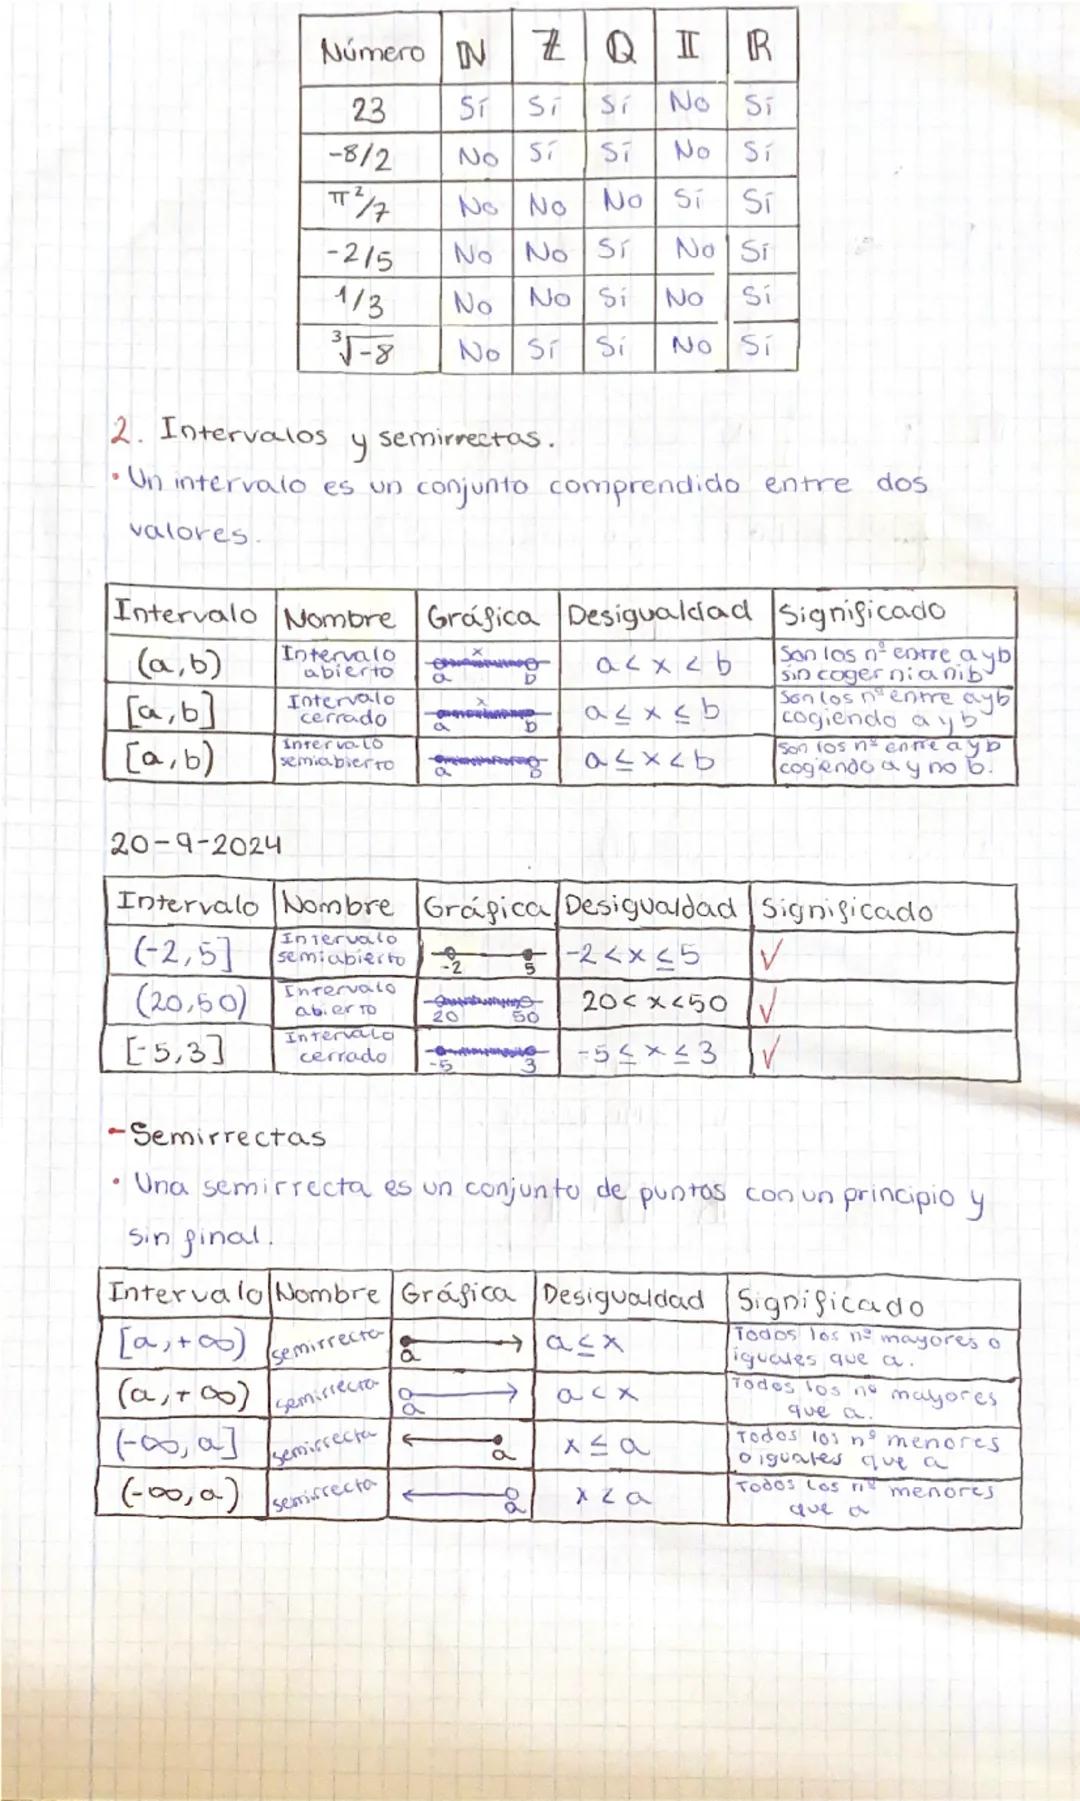 Número ℕ ℤ ℚ 𝕀 ℝ
23 Sí Sí Sí No Sí
-8/2 No Sí Sí No Sí
π²/7 No No No Sí Sí
-2/5 No No Sí No Sí
1/3 No No Sí No Sí
³√-8 No Sí Sí No Sí
2. Intervalos y semirrectas.
• Un intervalo es un conjunto comprendido entre dos
valores.
Intervalo Nombre Gráfica Desigualdad Significado
(a,b) Intervalo abierto x a b a<x<b Son los nº entre a y b sin coger ni a ni b
[a,b] Intervalo cerrado x a b a≤x≤b Son los nº entre a y b cogiendo a y b
[a,b) Intervalo semiabierto a b a≤x<b Son los nº entre a y b cogiendo a y no b.
20-9-2024
Intervalo Nombre Gráfica Desigualdad Significado
(-2,5] Intervalo semiabierto -2 5 -2<x≤5 ✓
(20,50) Intervalo abierto 20 50 20<x<50 ✓
[-5,3] Intervalo cerrado -5 3 -5≤x≤3 ✓
-Semirrectas
• Una semirrecta es un conjunto de puntos con un principio y
sin final.
Intervalo Nombre Gráfica Desigualdad Significado
[a,+∞) semirrecta a a≤x Todos los nº mayores o iguales que a.
(a,+∞) semirrecta a a<x Todos los nº mayores que a.
(-∞,a] semirrecta a x≤a Todos los nº menores o iguales que a
(-∞,a) semirrecta a x<a Todos los nº menores que a